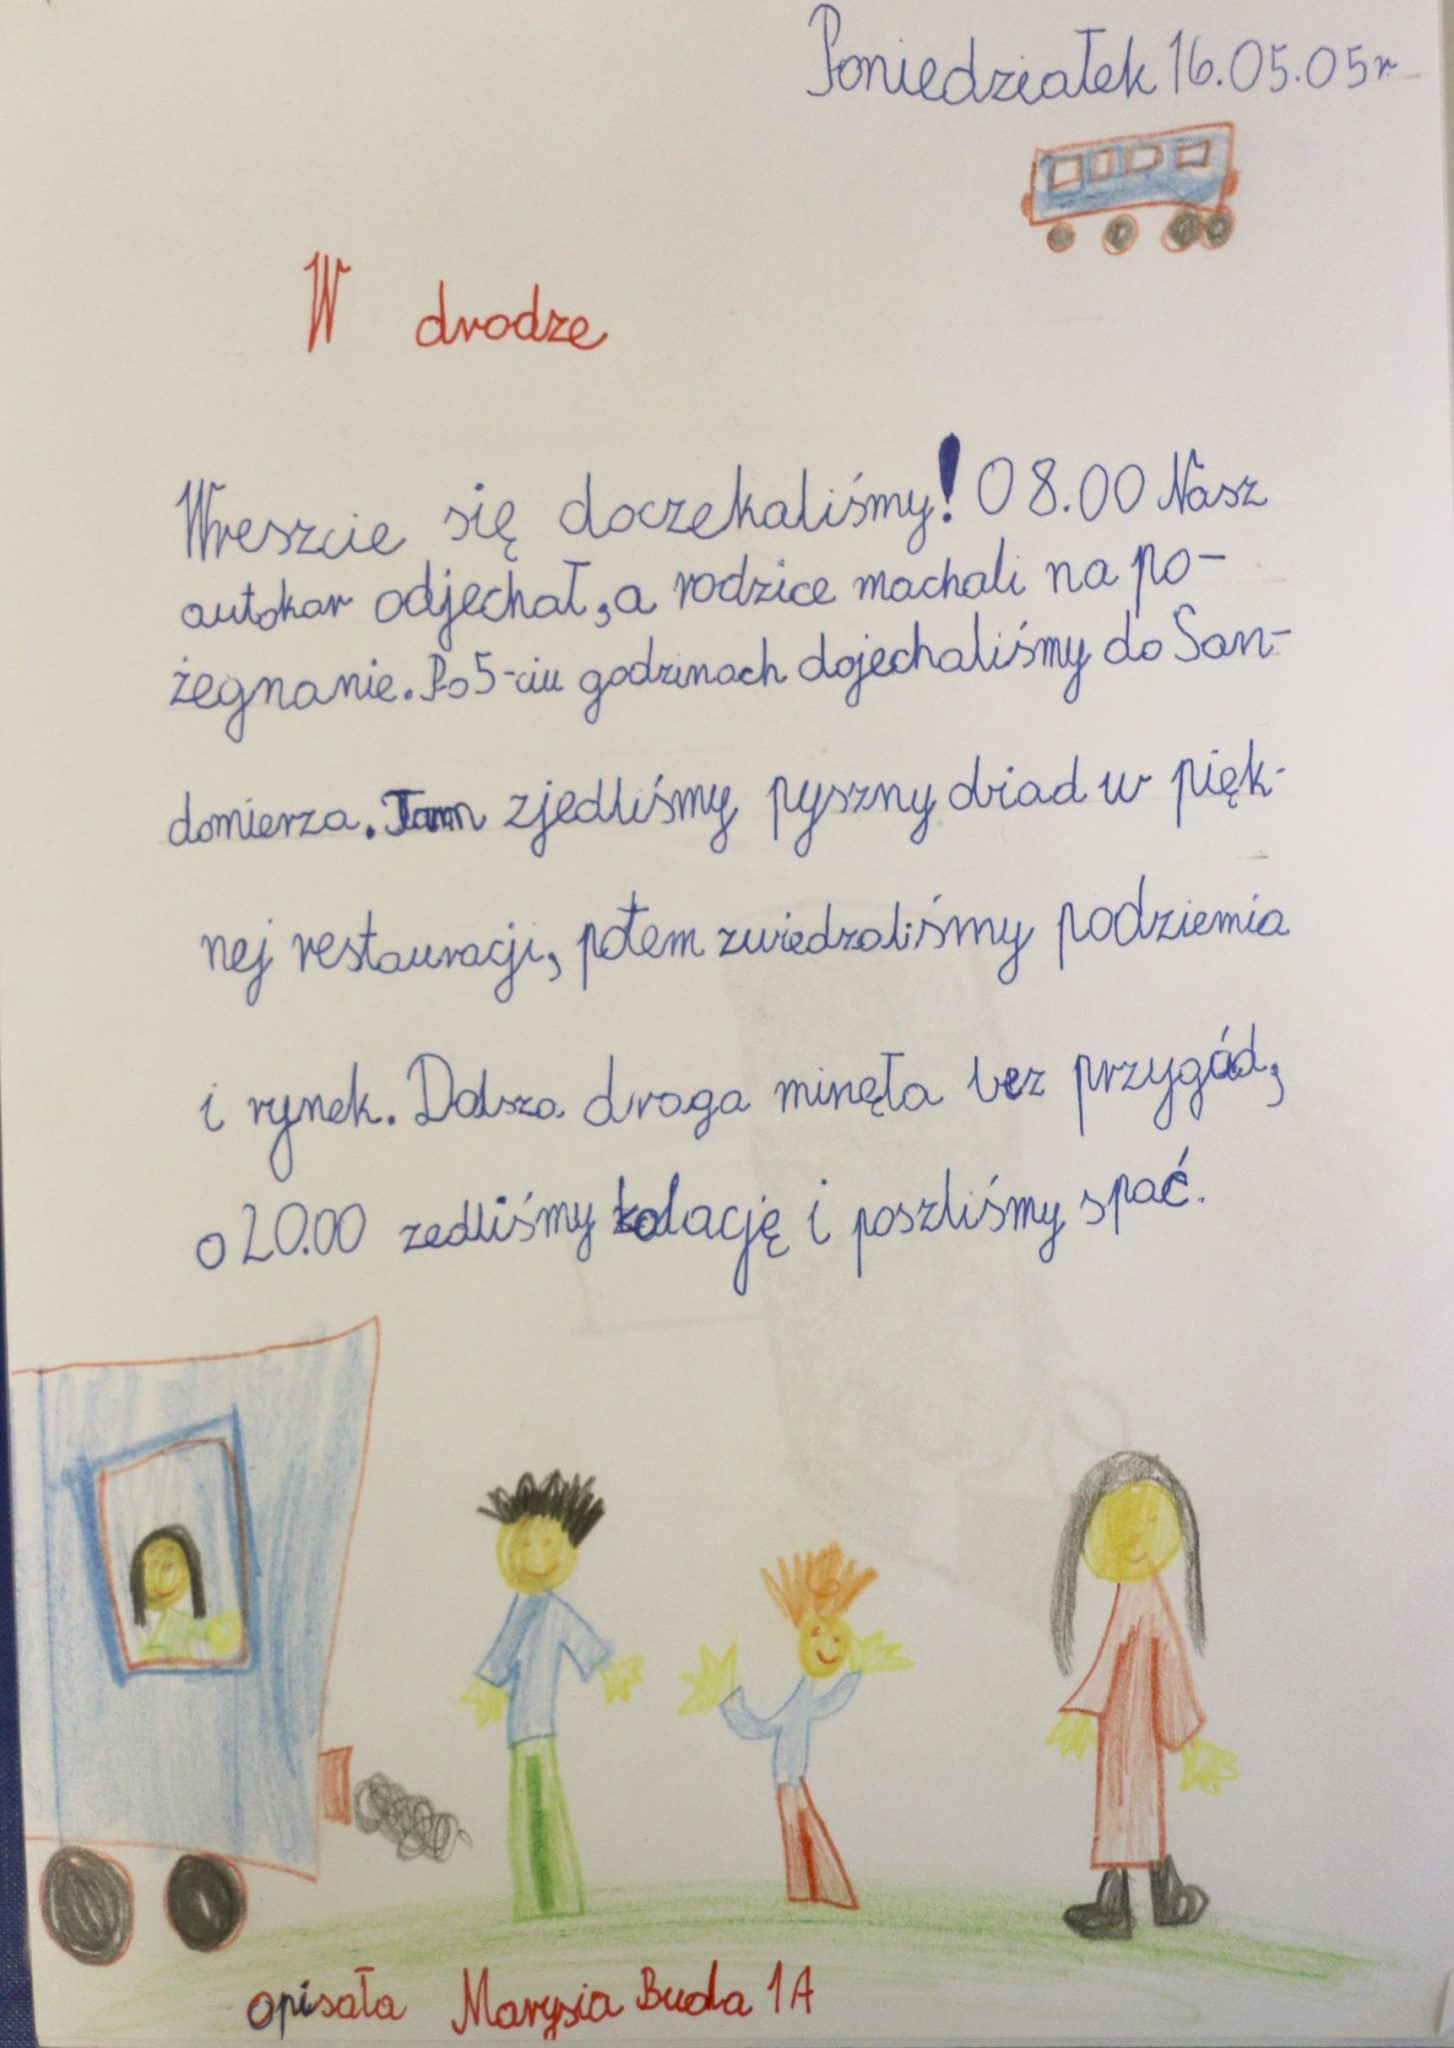 Poniedziałek 16.05.05r.
W drodze
Wreszcie się doczekaliśmy! 08.00 Nasz
autokar odjechał, a rodzice machali na po-
żegnanie. Po 5-ciu godzinach dojechaliśmy do San-
domierza. Tam zjedliśmy pyszny obiad w pięk-
nej restauracji, potem zwiedzaliśmy podziemia
i rynek. Dalsza droga minęła bez przygód,
o 20.00 zedliśmy kolację i poszliśmy spać.
opisała Marysia Buda 1A